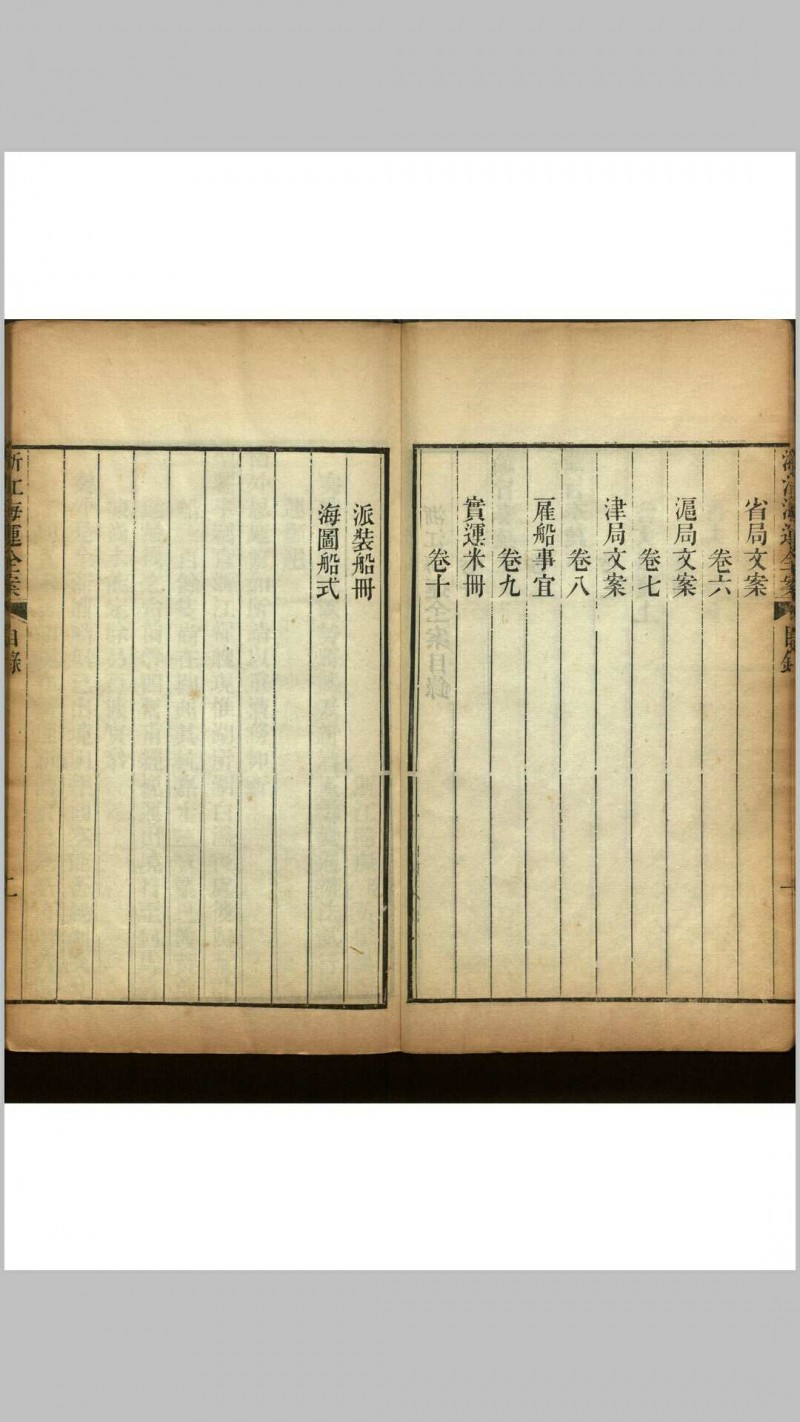 省局文案
卷六
滬局文案
卷七
津局文案
卷八
雇船事宜
卷九
實運米冊
卷十
派裝船冊
海圖船式
浙江海運全案
目錄
二
浙江海運全案
目錄
一